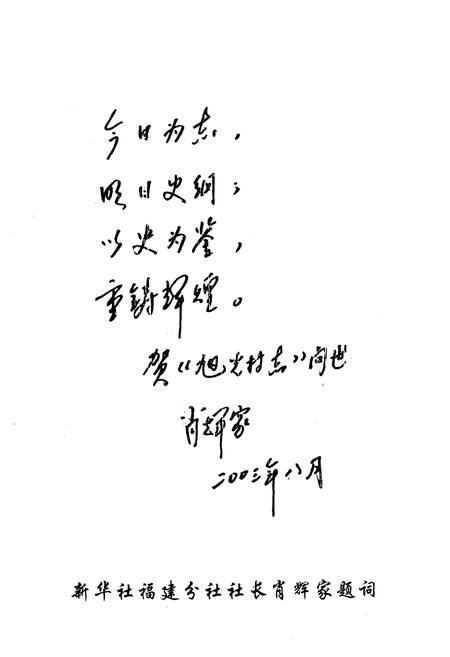 今日为志，
明日史纲；
以史为鉴，
重铸辉煌。
贺《旭光村志》问世
肖辉家
二00三年八月
新华社福建分社社长肖辉家题词